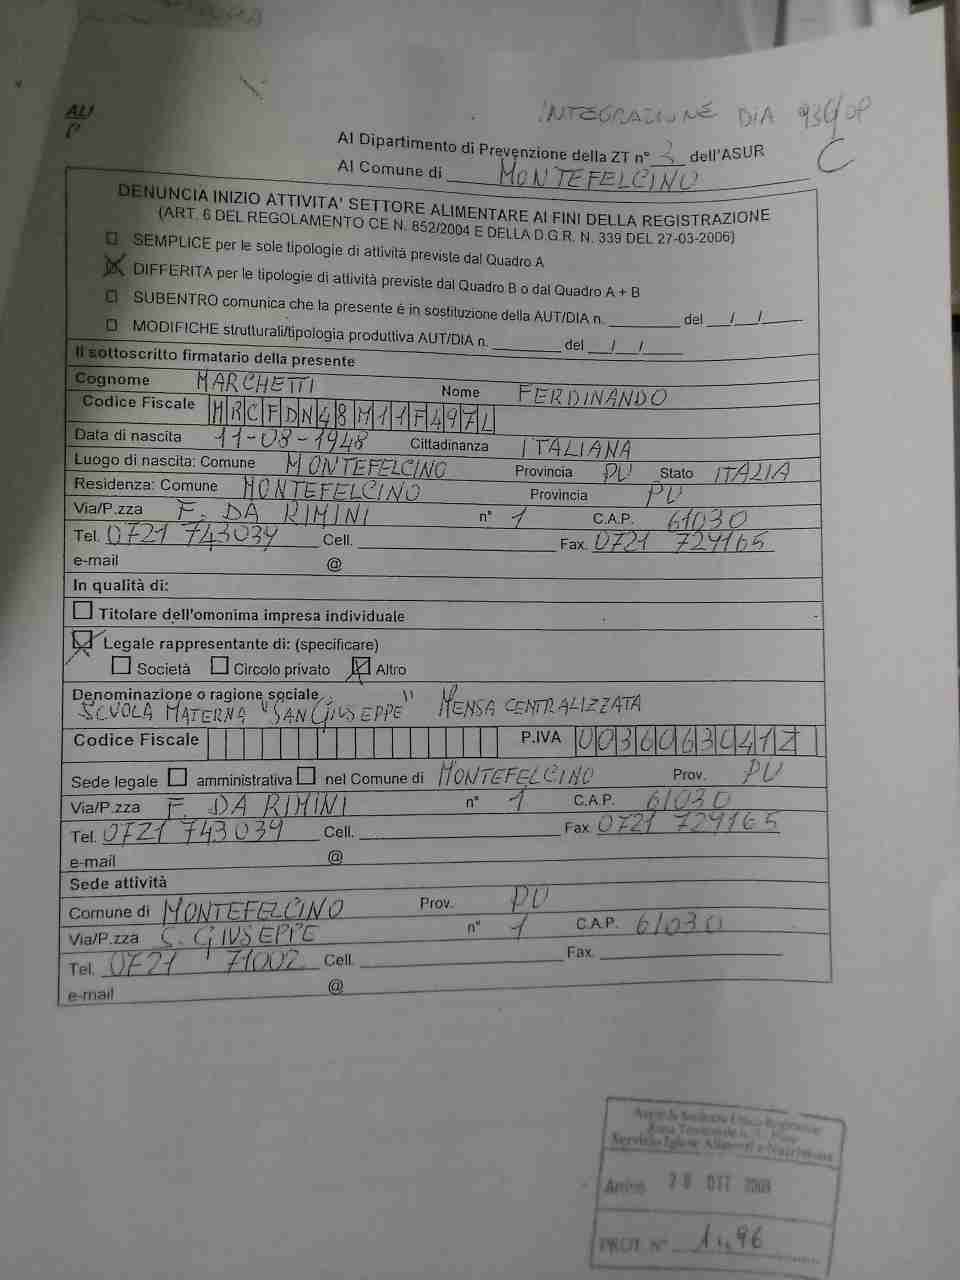 ALL
INTEGRAZIONE DIA
C
Al Dipartimento di Prevenzione della ZT n° 3 dell'ASUR
Al Comune di MONTEFELCINO
DENUNCIA INIZIO ATTIVITA' SETTORE ALIMENTARE AI FINI DELLA REGISTRAZIONE
(ART. 6 DEL REGOLAMENTO CE N. 852/2004 E DELLA D.G.R. N. 339 DEL 27-03-2006)
SEMPLICE per le sole tipologie di attività previste dal Quadro A
DIFFERITA per le tipologie di attività previste dal Quadro B o dal Quadro A + B
SUBENTRO comunica che la presente é in sostituzione della AUT/DIA n. ________ del ___/___/_____
MODIFICHE strutturali/tipologia produttiva AUT/DIA n. ________ del ___/___/_____
Il sottoscritto firmatario della presente
Cognome MARCHETTI Nome FERDINANDO
Codice Fiscale MRCFDN48M11F497L
Data di nascita 11-08-1948 Cittadinanza ITALIANA
Luogo di nascita: Comune MONTEFELCINO Provincia PU Stato ITALIA
Residenza: Comune MONTEFELCINO Provincia PU
Via/P.zza F. DA RIMINI n° 1 C.A.P. 61030
Tel. 0721 743039 Cell. ____________ Fax. 0721 729165
e-mail @
In qualità di:
Titolare dell'omonima impresa individuale
Legale rappresentante di: (specificare)
Società Circolo privato Altro
Denominazione o ragione sociale
SCUOLA MATERNA "SAN GIUSEPPE" MENSA CENTRALIZZATA
Codice Fiscale P.IVA 00360630412
Sede legale amministrativa nel Comune di MONTEFELCINO Prov. PU
Via/P.zza F. DA RIMINI n° 1 C.A.P. 61030
Tel. 0721 743039 Cell. ____________ Fax 0721 729165
e-mail @
Sede attività
Comune di MONTEFELCINO Prov. PU
Via/P.zza S. GIUSEPPE n° 1 C.A.P. 61030
Tel. 0721 71002 Cell. ____________ Fax. ____________
e-mail @
Servizio Igiene Alimenti e Nutrizione
Arrivo 28 OTT
PROT. N°